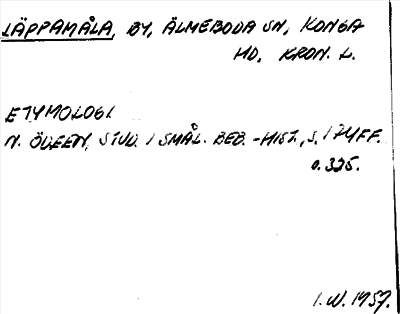 LÄPPAMÅLA, BY, ÄLMEBODA SN, KONGA
HD, KRON. L.
ETYMOLOGI.
N. ÖDEEN, STUD. I SMÅL. BEB.-HIST., S. 174FF.
O. 325.
I.W. 1957.